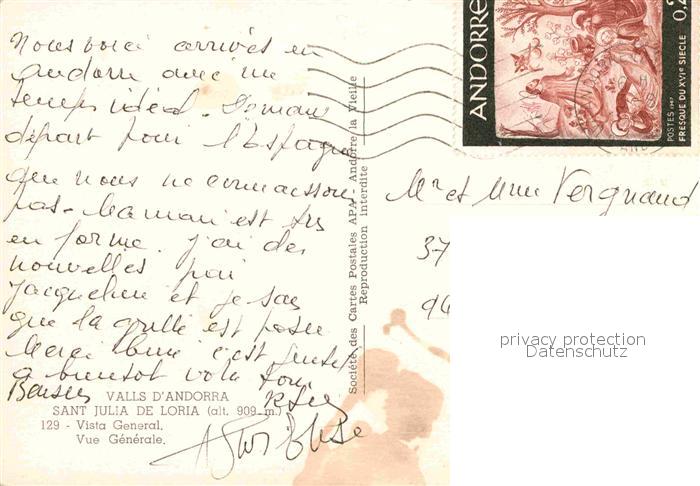 Nous voici arrivés en
Andorre avec un
temps idéal. Demain
départ pour l'Espagne
que nous ne connaissons
pas. Maman est très
en forme. j'ai des
nouvelles par
Jacqueline et je sais
que la grille est posée
Merci bien c'est gentil
à bientôt
Baisers
VALLS D'ANDORRA
SANT JULIA DE LORIA (alt. 909 m.)
129 - Vista General.
Vue Générale.
Société des Cartes Postales APA - Andorre la Vieille
Reproduction Interdite
ANDORRE
0,2
POSTES 1967
FRESQUE DU XVIe SIECLE
Mr et Mme Vergnaud
37
94
privacy protection
Datenschutz